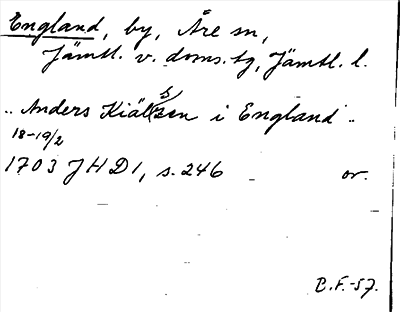 England, by, Åre sn,
Jämtl. v. doms. tg, Jämtl. l.
.. Anders Kiälssen i England ..
18-19/2
1703 JHD1, s. 246 or.
B.F.-57.